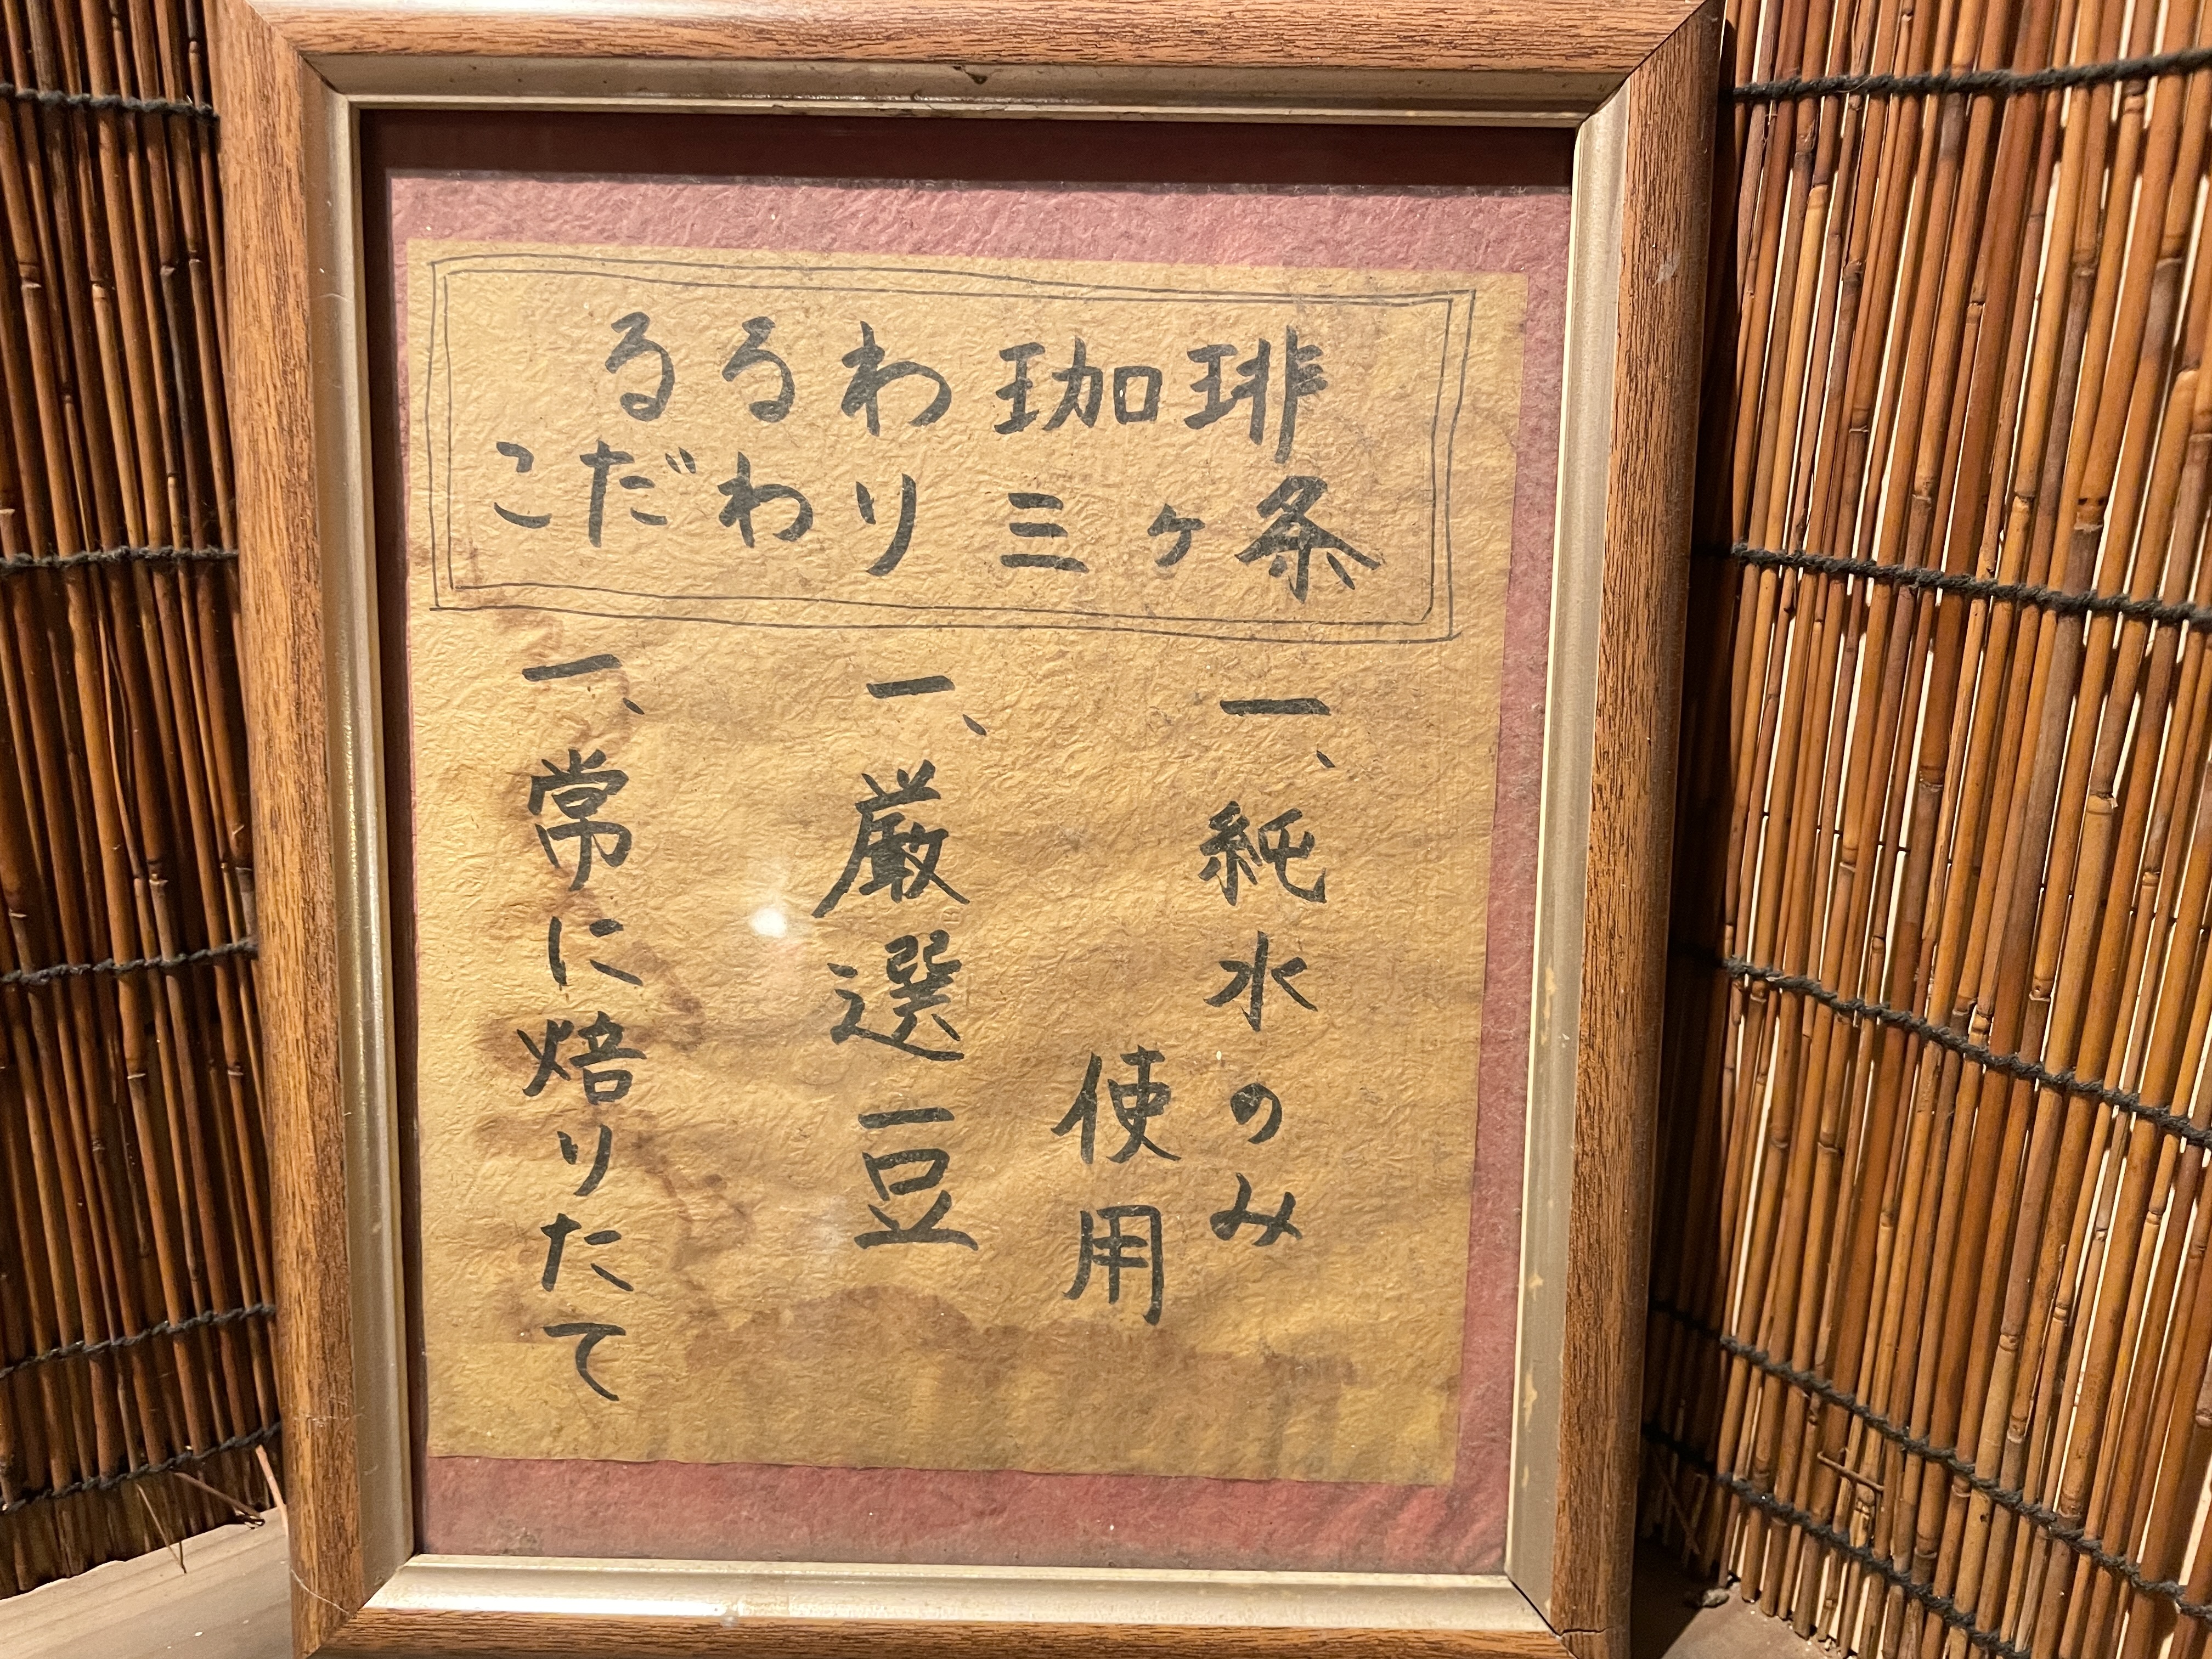 るるわ珈琲
こだわり三ヶ条
一、純水のみ
使用
一、厳選豆
一、常に焙りたて